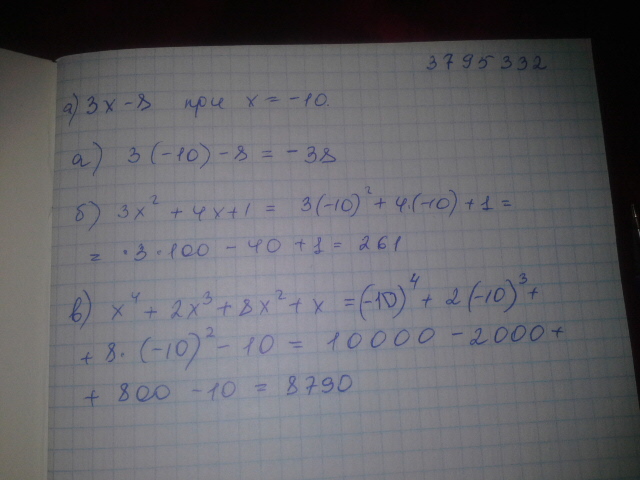 3795332
а) 3x - 8 при x = -10.
а) 3(-10) - 8 = -38
б) 3x² + 4x + 1 = 3(-10)² + 4·(-10) + 1 =
= ·3·100 - 40 + 1 = 261
в) x⁴ + 2x³ + 8x² + x = (-10)⁴ + 2(-10)³ +
+ 8·(-10)² - 10 = 10000 - 2000 +
+ 800 - 10 = 8790